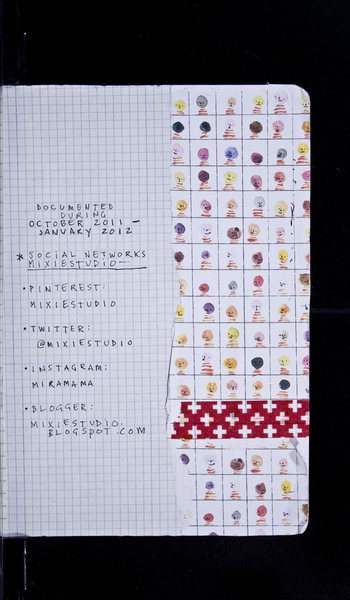 DOCUMENTED
DURING
OCTOBER 2011 -
JANUARY 2012
* SOCIAL NETWORKS
MIXIESTUDIO
• PINTEREST:
MIXIESTUDIO
• TWITTER:
@MIXIESTUDIO
• INSTAGRAM:
MIRAMAMA
• BLOGGER:
MIXIESTUDIO.
BLOGSPOT.COM